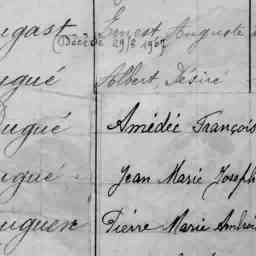 ugast Ernest, Auguste
(Décédé 29/8 1967)
ugué Albert, Désiré
ugué Amédée François
ugué Jean Marie Joseph
uguen Pierre Marie Ambroi